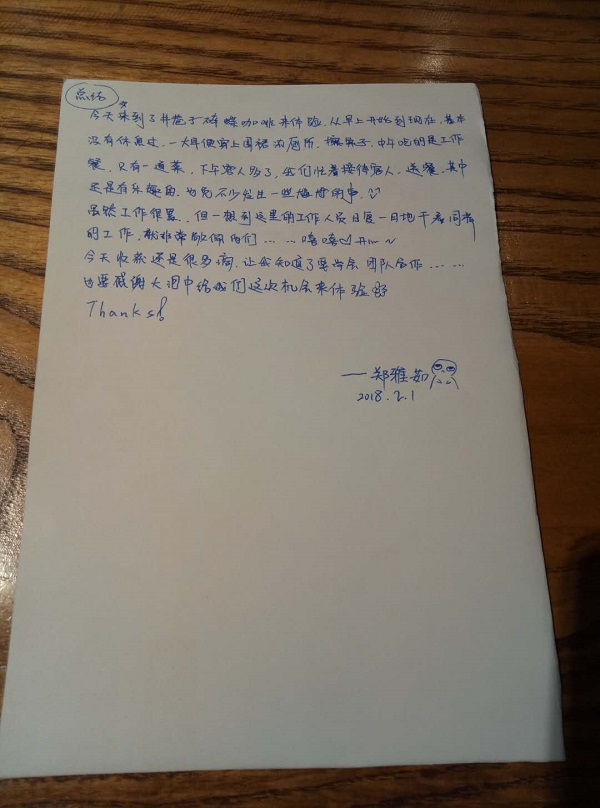 总结
今天来到了井巷子碎蝶咖啡来体验,从早上开始到现在,基本
没有休息过,一大早便穿上围裙 扫厕所,擦桌子,中午吃的是工作
餐,只有一道菜,下午客人多了,我们忙着接待客人,送餐,其中
还是有乐趣的,也免不少发生一些尴尬的事.
虽然工作很累,但一想到这里的工作人员日复一日地干着同样
的工作,就非常敬佩他们……嘻嘻
今天收获还是很多滴,让我知道了要学会团队合作……
也要感谢大迴中给我们这次机会来体验
Thanks!
——郑雅茹
2018.2.1